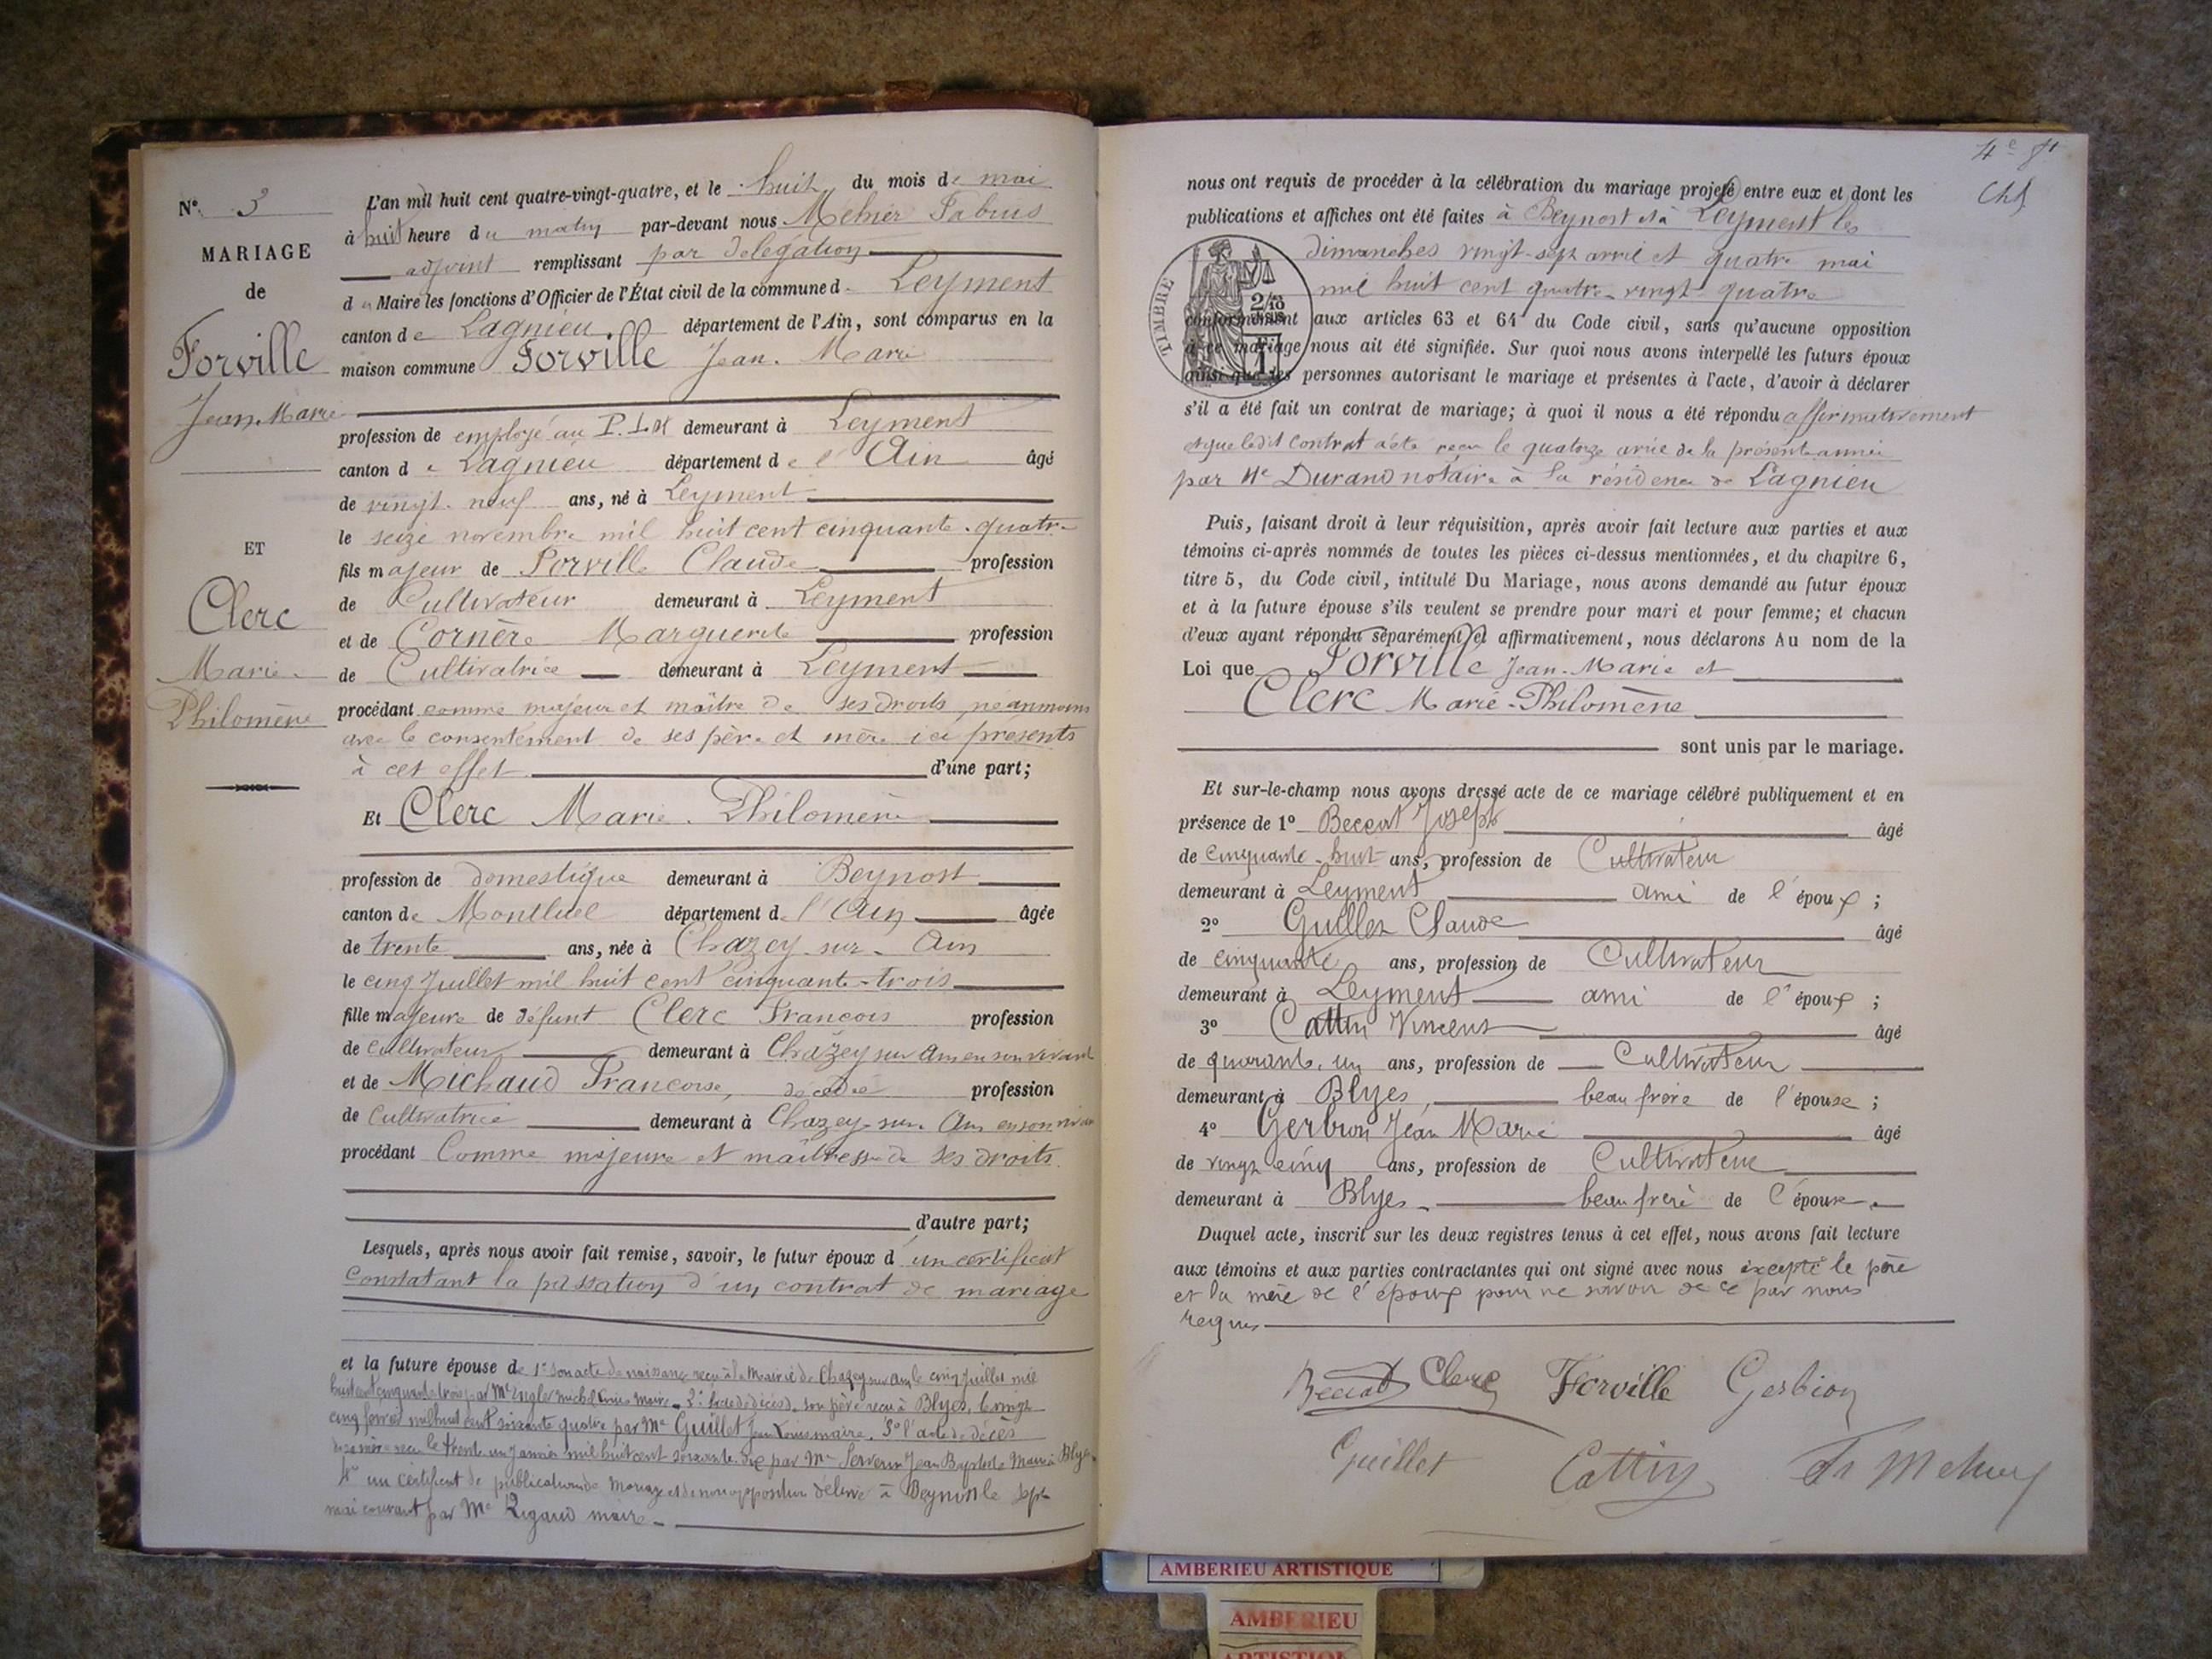 N° 3
MARIAGE
de
Forville
Jean-Marie
ET
Clerc
Marie
Philomène
L'an mil huit cent quatre-vingt-quatre, et le huit du mois de mai
à huit heure du matin par-devant nous Mehier Fabius
adjoint remplissant par délégation
du Maire les fonctions d'Officier de l'État civil de la commune d Leyment
canton de Lagnieu, département de l'Ain, sont comparus en la
maison commune Forville Jean-Marie
profession de employé au P.L.M demeurant à Leyment
canton de Lagnieu département de l'Ain âgé
de vingt-neuf ans, né à Leyment
le seize novembre mil huit cent cinquante-quatre
fils majeur de Forville Claude profession
de Cultivateur demeurant à Leyment
et de Cornère Marguerite profession
de Cultivatrice demeurant à Leyment
procédant comme majeur et maître de ses droits, néanmoins
avec le consentement de ses père et mère ici présents
à cet effet d'une part;
Et Clerc Marie-Philomène
profession de domestique demeurant à Beynost
canton de Montluel département de l'Ain âgée
de trente ans, née à Chazey-sur-Ain
le cinq Juillet mil huit cent cinquante-trois
fille majeure de défunt Clerc François profession
de cultivateur demeurant à Chazey sur Ain en son vivant
et de Michaud Françoise, décédée profession
de cultivatrice demeurant à Chazey-sur-Ain en son vivant
procédant Comme majeure et maîtresse de ses droits
d'autre part;
Lesquels, après nous avoir fait remise, savoir, le futur époux d'un certificat
constatant la passation d'un contrat de mariage
et la future épouse de 1° son acte de naissance reçu à la Mairie de Chazey sur Ain le cinq juillet mil
huit cent cinquante trois par Mr Michel Louis Maire - 2° l'acte de décès de son père reçu à Blyes, le vingt
cinq février mil huit cent soixante quatre par Mr Guillet Jean Louis maire. 3° l'acte de décès
de sa mère reçu le trente un Janvier mil huit cent soixante dix par Mr Jean Baptiste Maire à Blyes
4° un certificat de publication de Mariage et de non opposition délivré à Beynost le sept
mai courant par Mr Rigaud maire
4e
nous ont requis de procéder à la célébration du mariage projeté entre eux et dont les
publications et affiches ont été faites à Beynost et à Leyment les
dimanches vingt-sept avril et quatre mai
mil huit cent quatre-vingt-quatre
TIMBRE
conformément aux articles 63 et 64 du Code civil, sans qu'aucune opposition
à ce mariage nous ait été signifiée. Sur quoi nous avons interpellé les futurs époux
ainsi que les personnes autorisant le mariage et présentes à l'acte, d'avoir à déclarer
s'il a été fait un contrat de mariage; à quoi il nous a été répondu affirmativement
et que ledit contrat a été reçu le quatorze avril de la présente année
par Me Durand notaire à la résidence de Lagnieu
Puis, faisant droit à leur réquisition, après avoir fait lecture aux parties et aux
témoins ci-après nommés de toutes les pièces ci-dessus mentionnées, et du chapitre 6,
titre 5, du Code civil, intitulé Du Mariage, nous avons demandé au futur époux
et à la future épouse s'ils veulent se prendre pour mari et pour femme; et chacun
d'eux ayant répondu séparément et affirmativement, nous déclarons Au nom de la
Loi que Forville Jean-Marie et
Clerc Marie-Philomène
sont unis par le mariage.
Et sur-le-champ nous avons dressé acte de ce mariage célébré publiquement et en
présence de 1° Beccat Joseph âgé
de cinquante-huit ans, profession de Cultivateur
demeurant à Leyment ami de l'époux;
2° Guillet Claude âgé
de cinquante ans, profession de Cultivateur
demeurant à Leyment ami de l'époux;
3° Cattin Vincent âgé
de quarante-un ans, profession de Cultivateur
demeurant à Blyes, beau frère de l'épouse;
4° Gerbion Jean Marie âgé
de vingt cinq ans, profession de Cultivateur
demeurant à Blyes beau frère de l'épouse.
Duquel acte, inscrit sur les deux registres tenus à cet effet, nous avons fait lecture
aux témoins et aux parties contractantes qui ont signé avec nous excepté le père
et la mère de l'époux pour ne savoir de ce par nous
requis
Beccat Clerc Forville Gerbion
Guillet Cattin Mehier
AMBERIEU ARTISTIQUE
AMBERIEU
ARTISTIQUE